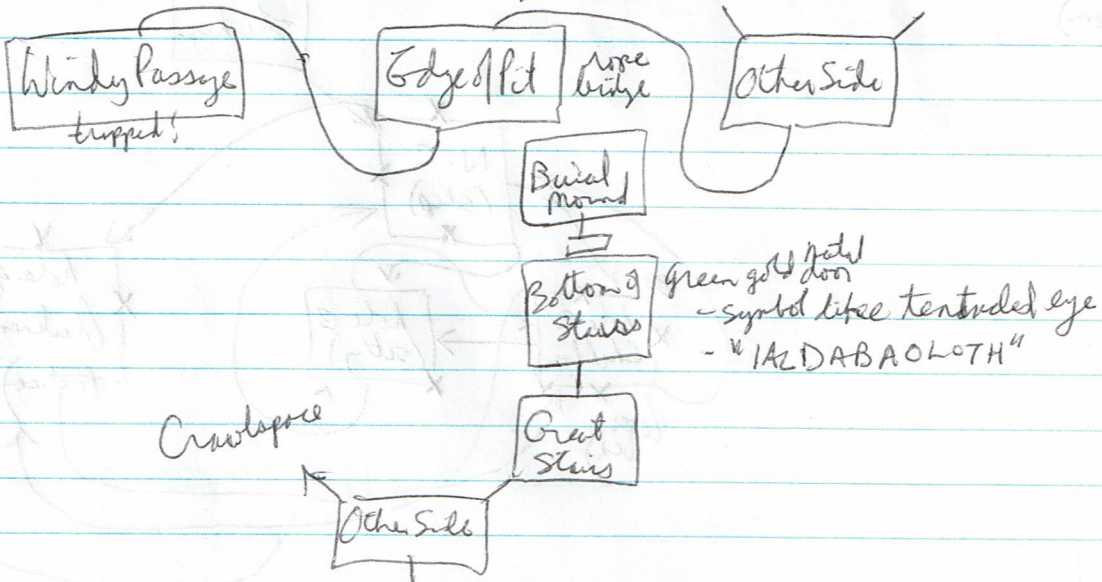 Windy Passage
trapped!
Edge of Pit
rope
bridge
Other Side
Burial
Mound
Bottom of
Stairs
Green gold metal
door
- symbol like tentacled eye
- "IALDABAOLOTH"
Great
Stairs
Crawlspace
Other Side